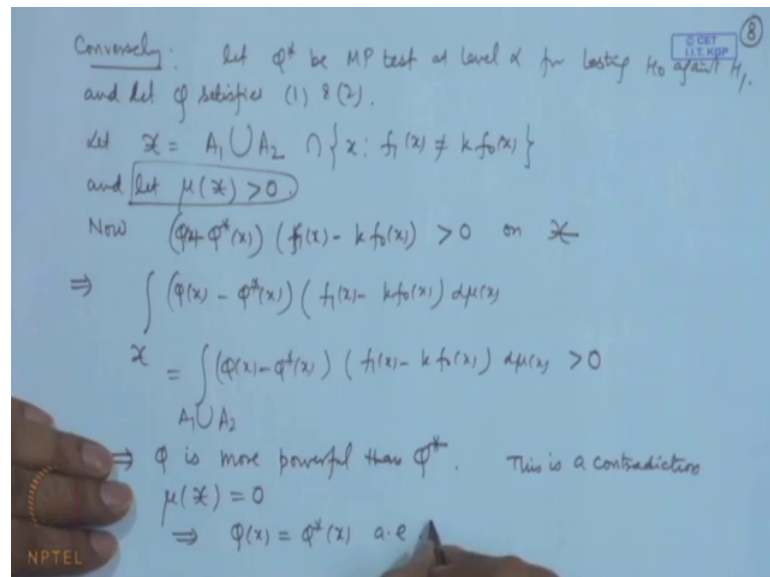 8
© CET
I.I.T. KGP
Conversely: let φ* be MP test at level α for testing H₀ against H₁.
and let φ satisfies (1) & (2).
Let 𝒳 = A₁ ∪ A₂ ∩ {x: f₁(x) ≠ k f₀(x)}
and let μ(𝒳) > 0.
Now (φ(x) - φ*(x)) (f₁(x) - k f₀(x)) > 0 on 𝒳
⇒ ∫ (φ(x) - φ*(x)) (f₁(x) - k f₀(x)) dμ(x)
𝒳
= ∫ (φ(x) - φ*(x)) (f₁(x) - k f₀(x)) dμ(x) > 0
A₁ ∪ A₂
⇒ φ is more powerful than φ*. This is a contradiction
μ(𝒳) = 0
⇒ φ(x) = φ*(x) a.e
NPTEL